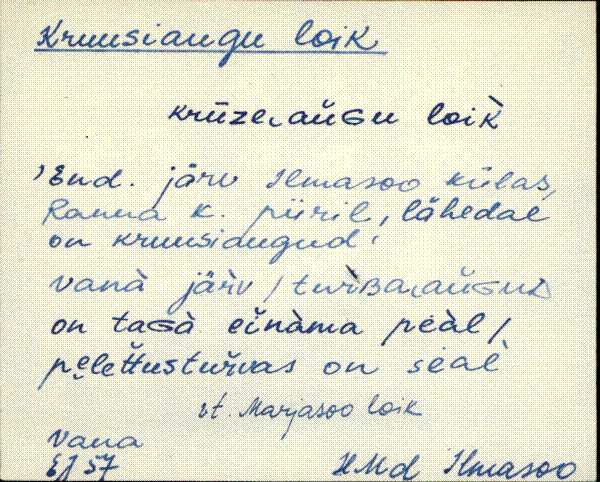 Kruusiaugu loik
krūzeᴗaŭGu loik̀
'End. järv Ilmasoo külas,
Ranna k. piiril, lähedal
on kruusiaugud'
vanà järv / tuřBaᴗaŭGuD
on taGà eĭnàma peàl /
pe̮letťusturvas on seàl
vt. Marjasoo loik
Vana
EJ 57 HMd Ilmasoo